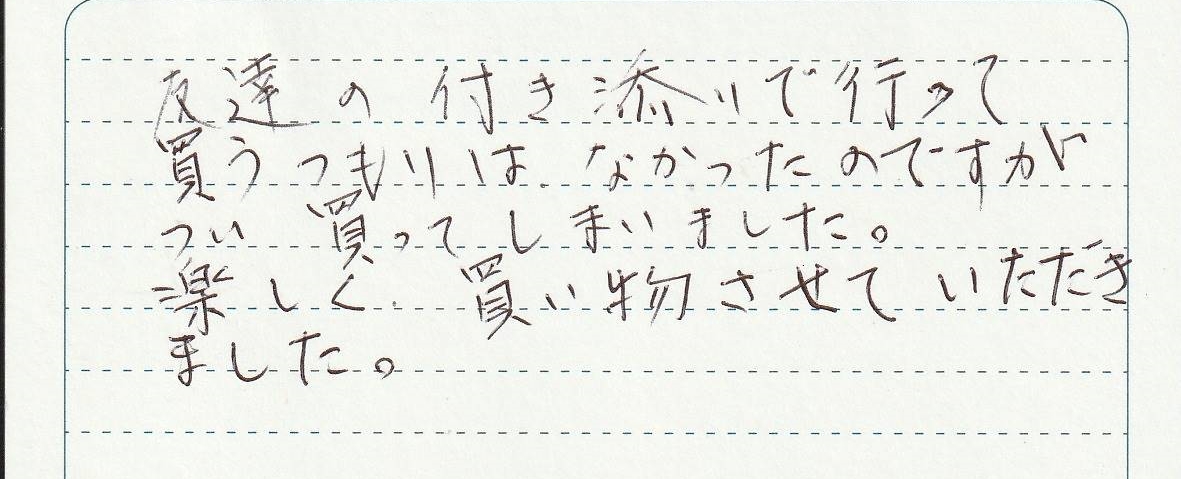 友達の付き添いで行って
買うつもりはなかったのですが
つい買ってしまいました。
楽しく買い物させていただき
ました。